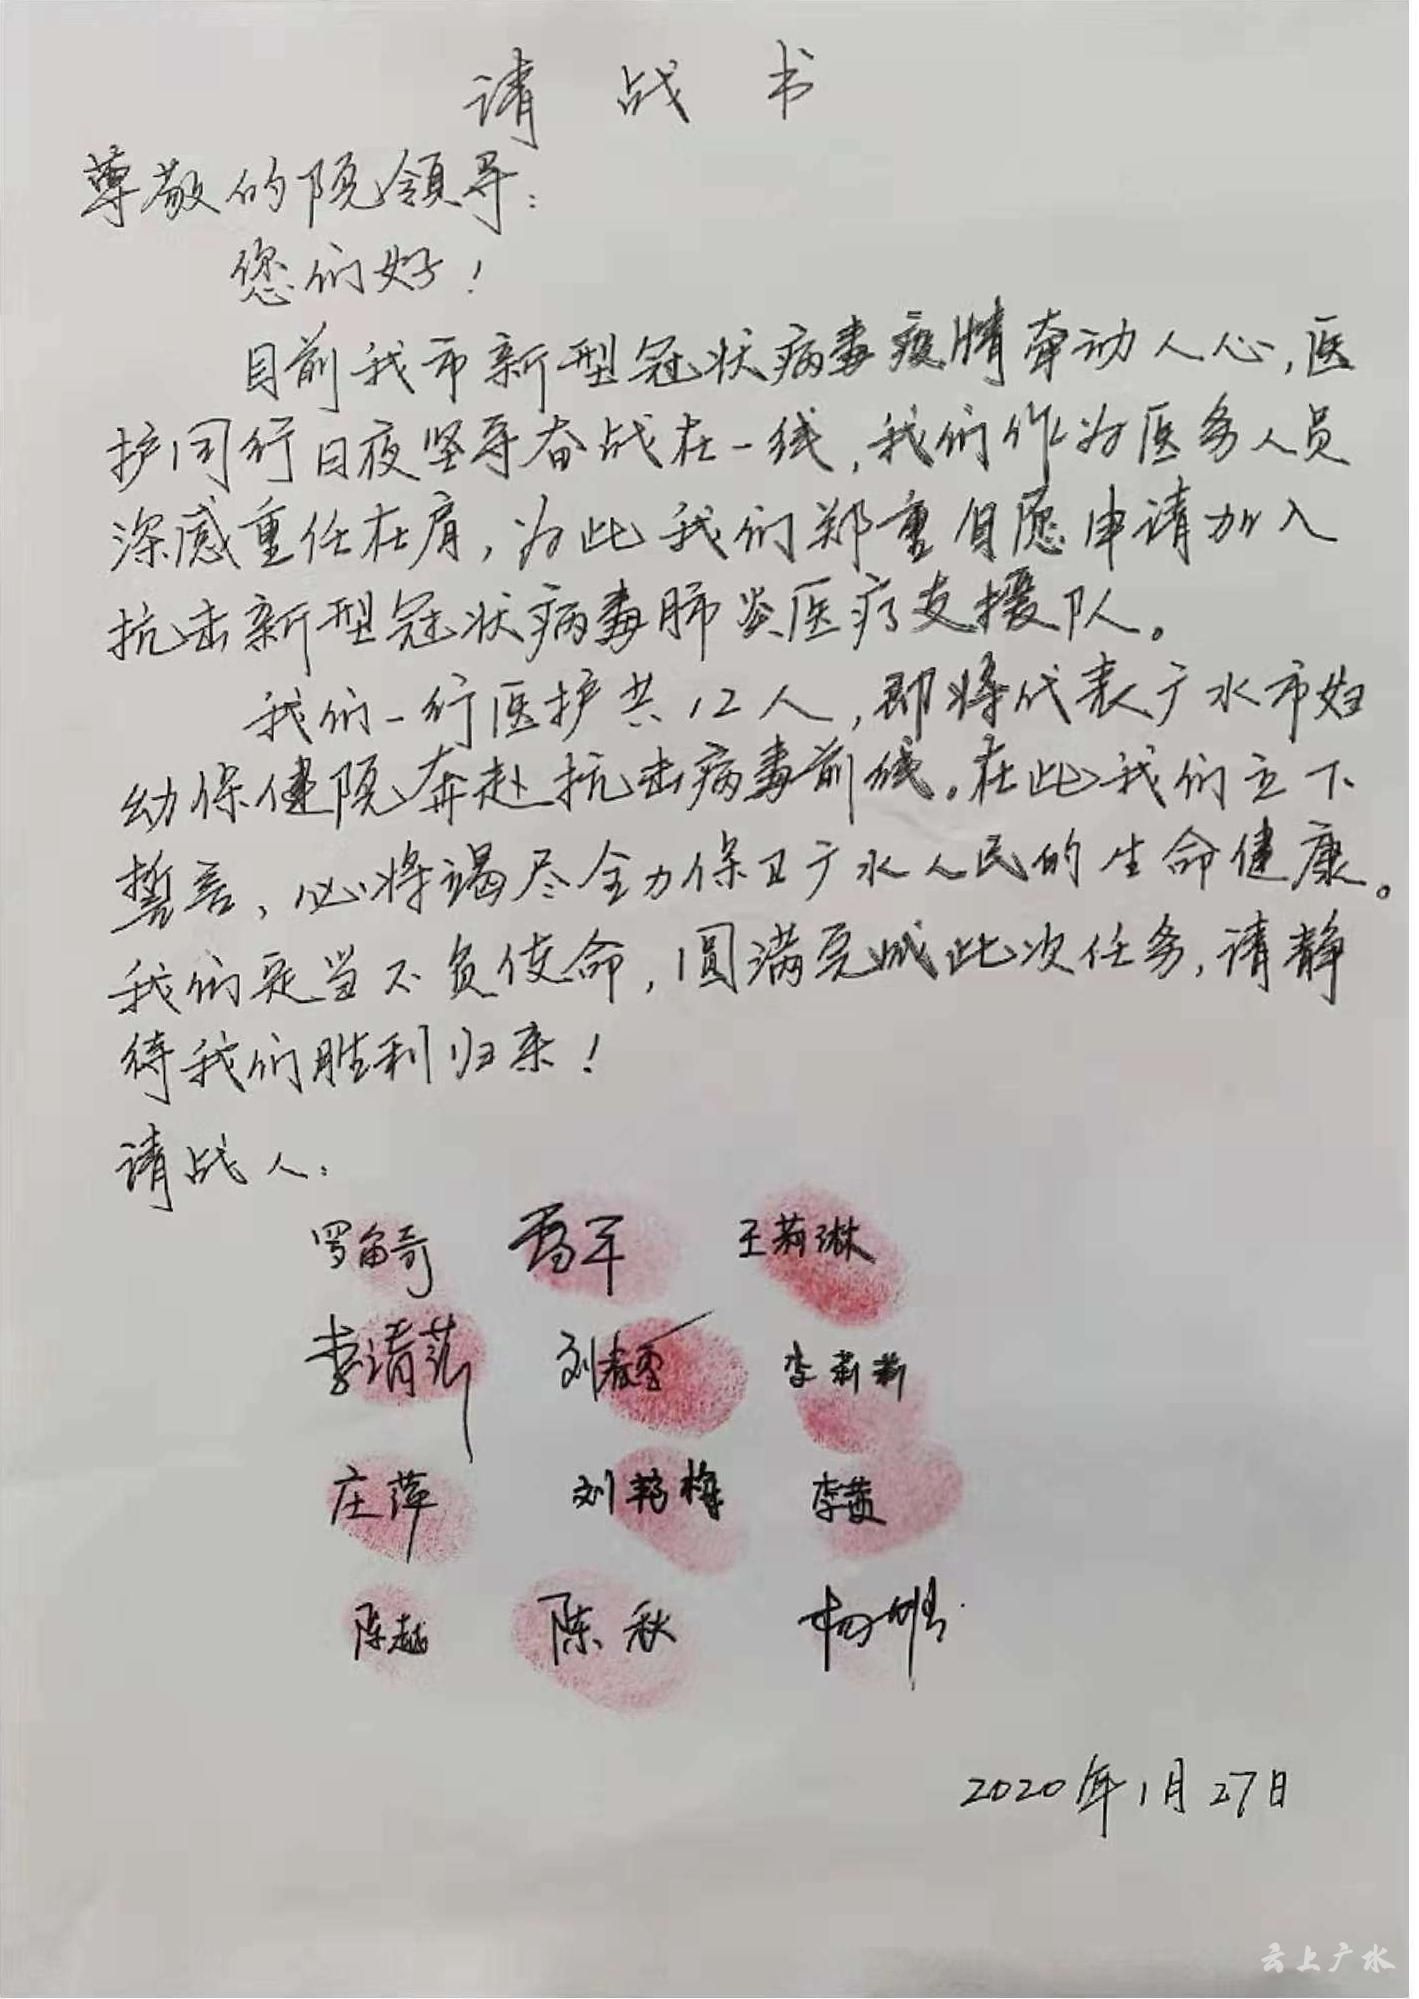 请战书
尊敬的院领导：
您们好！
目前我市新型冠状病毒疫情牵动人心，医
护同行日夜坚守奋战在一线，我们作为医务人员
深感重任在肩，为此我们郑重自愿申请加入
抗击新型冠状病毒肺炎医疗支援队。
我们一行医护共12人，即将代表广水市妇
幼保健院奔赴抗击病毒前线。在此我们立下
誓言，必将竭尽全力保卫广水人民的生命健康。
我们定当不负使命，圆满完成此次任务，请静
待我们胜利归来！
请战人：
王莉琳
李清 刘春雪 李莉莉
庄萍 刘艳梅 李
陈越 陈秋 杨
2020年1月27日
云上广水